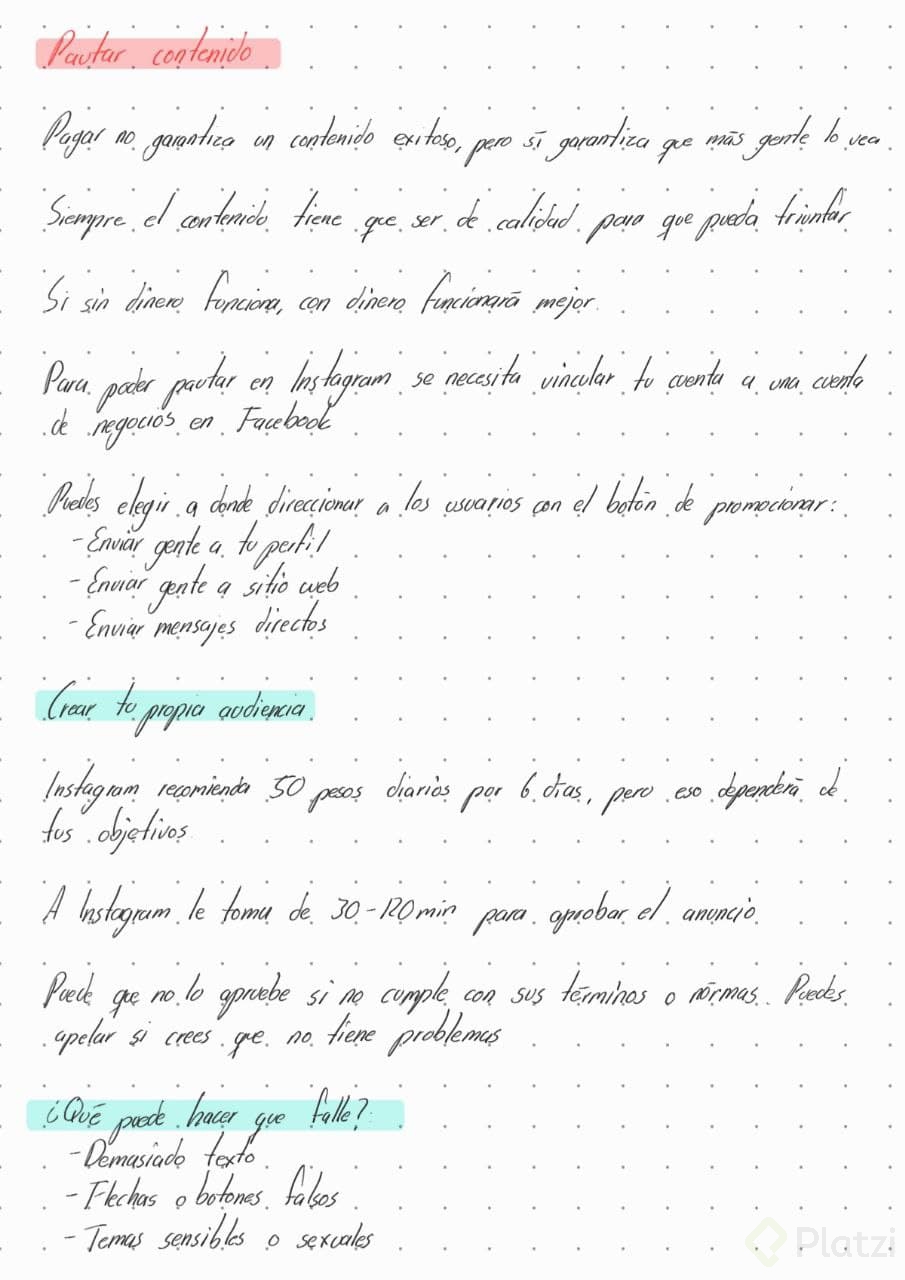 Pautar contenido
Pagar no garantiza un contenido exitoso, pero sí garantiza que más gente lo vea
Siempre el contenido tiene que ser de calidad para que pueda triunfar
Si sin dinero funciona, con dinero funcionará mejor.
Para poder pautar en Instagram se necesita vincular tu cuenta a una cuenta
de negocios en Facebook
Puedes elegir a donde direccionar a los usuarios con el botón de promocionar:
- Enviar gente a tu perfil
- Enviar gente a sitio web
- Enviar mensajes directos
Crear tu propia audiencia
Instagram recomienda 50 pesos diarios por 6 días, pero eso dependerá de
tus objetivos
A Instagram le toma de 30-120 min para aprobar el anuncio
Puede que no lo apruebe si no cumple con sus términos o normas. Puedes
apelar si crees que no tiene problemas
¿Qué puede hacer que falle?
- Demasiado texto
- Flechas o botones falsos
- Temas sensibles o sexuales
Platzi